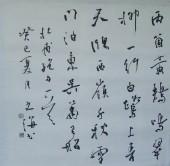 兩箇黃鸝鳴翠
柳一行白鷺上青
天窗含西嶺千秋雪
門泊東吳萬里船
杜甫
癸巳夏月